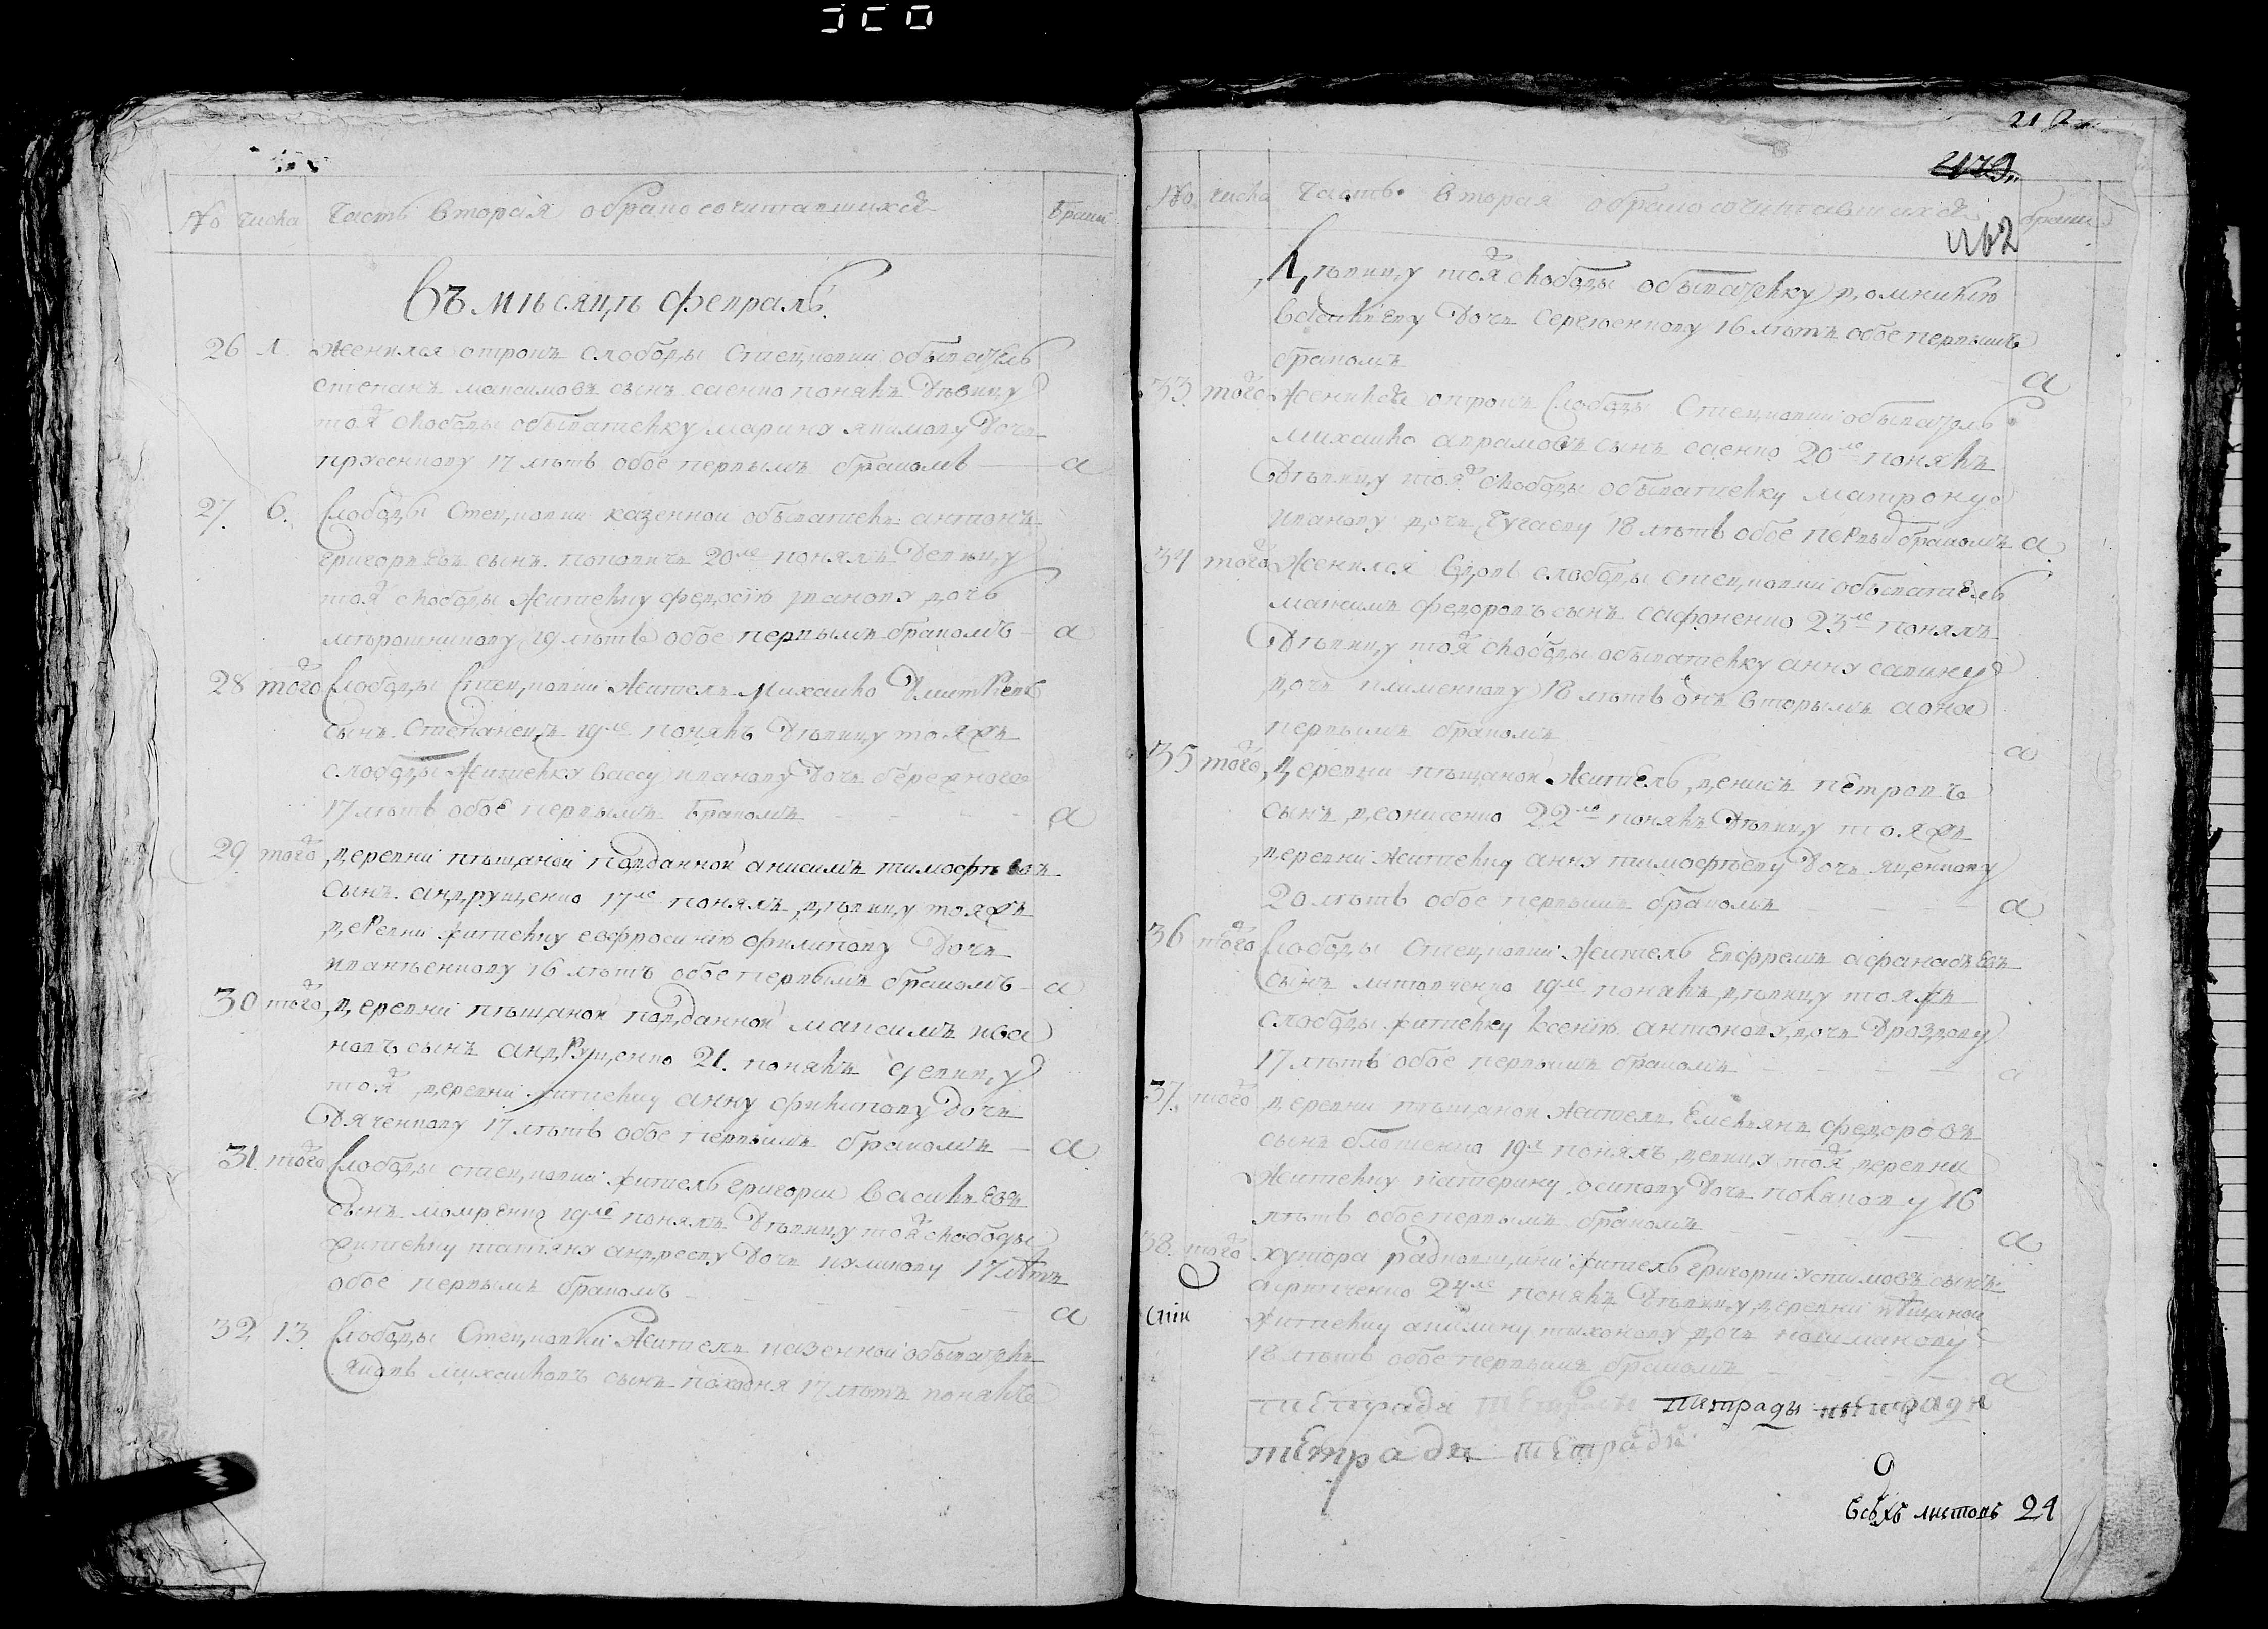 No числа Часть вторая о бракосочитавшихся браки
въ мпсяцп февраль
26 1. женился отрокъ слободы Стецковки обыватель
степанъ максимовъ сынъ саенко понялъ Дѣвицу
тоя слободы обывателку марину якимову Дочь
прусенкову 17 лѣтъ обое первымъ бракомъ а
27. 6. Слободы Стецковки казенной обыватель антонъ
григорьевъ сынъ поповичь 20ле понялъ Девицу
тоя слободы жителку федосію иванову дочь
мѣрошникову 19 лѣтъ обое первымъ бракомъ а
28 того Слободы Стецковки житель Михайло Дмитріевъ
сынъ Степанецъ 19ле понялъ Дѣвицу тояжъ
слободы жителку вассу иванову Дочь бережного
17 лѣтъ обое первымъ бракомъ а
29 того деревни пѣщаной подданной анисимъ тимофѣевъ
сынъ андрущенко 17ле понялъ дѣвицу тояжъ
деревни жителку евфросинію филипову Дочь
иваненкову 16 лѣтъ обое первымъ бракомъ а
30 того деревни пѣщаной подданной максимъ ива
новъ сынъ андрущенко 21. понялъ девицу
тоя деревни жителку анну филипову дочь
Дяченкову 17 лѣтъ обое первымъ бракомъ а
31. того Слободы стецковки житель григорий васильевъ
сынъ 19ле понялъ Дѣвицу тоя слободы
жителку татяну андрееву Дочь куликову 17 лѣтъ
обое первымъ бракомъ а
32 13 Слободы Стецковки житель казенной обыватель
яковъ михайловъ сынъ походня 17 лѣтъ понялъ
21
No числа Часть вторая о бракосочитавшихся браки
Дѣвицу тоя слободы обывателку домникію
василіеву Дочь сергѣенкову 16 лѣтъ обое первымъ
бракомъ а
33. того женился отрокъ Слободы Стецковки обыватель
михайло аврамовъ сынъ саенко 20ле понялъ
Дѣвицу тоя слободы обывателку матрону
иванову дочь чугаеву 18 лѣтъ обое первы бракомъ а
34 того женился вдовъ слободы стецковки обыватель
максимъ федоровъ сынъ сафоненко 23ле понялъ
Дѣвицу тоя слободы обывателку анну савину
дочь клименкову 18 лѣтъ онъ вторымъ а она
первымъ бракомъ а
35 того деревни пѣщаной житель денисъ петровъ
сынъ леонисенко 22ле понялъ Дѣвицу тояжъ
деревни жителку анну тимофѣеву Дочь яценкову
20 лѣтъ обое первымъ бракомъ а
36 того Слободы Стецковки житель Евфремъ афанасьевъ
сынъ литовченко 19ле понялъ дѣвицу тояжъ
слободы жителку ксенію антонову дочь Дроздову
17 лѣтъ обое первымъ бракомъ а
37. того деревни пѣщаной житель Емельянъ федоровъ
сынъ 19л понялъ девицу тоя деревни
жителку катерину осипову Дочь 16
лѣтъ обое первымъ бракомъ а
38. того хутора житель григорий устимовъ сынъ
24ле понялъ Дѣвицу деревни пѣщаной
жителку акилину тихонову дочь
18 лѣтъ обое первымъ бракомъ а
тетради тетради тетради тетради
тетради тетради
всѣхъ листовъ 24